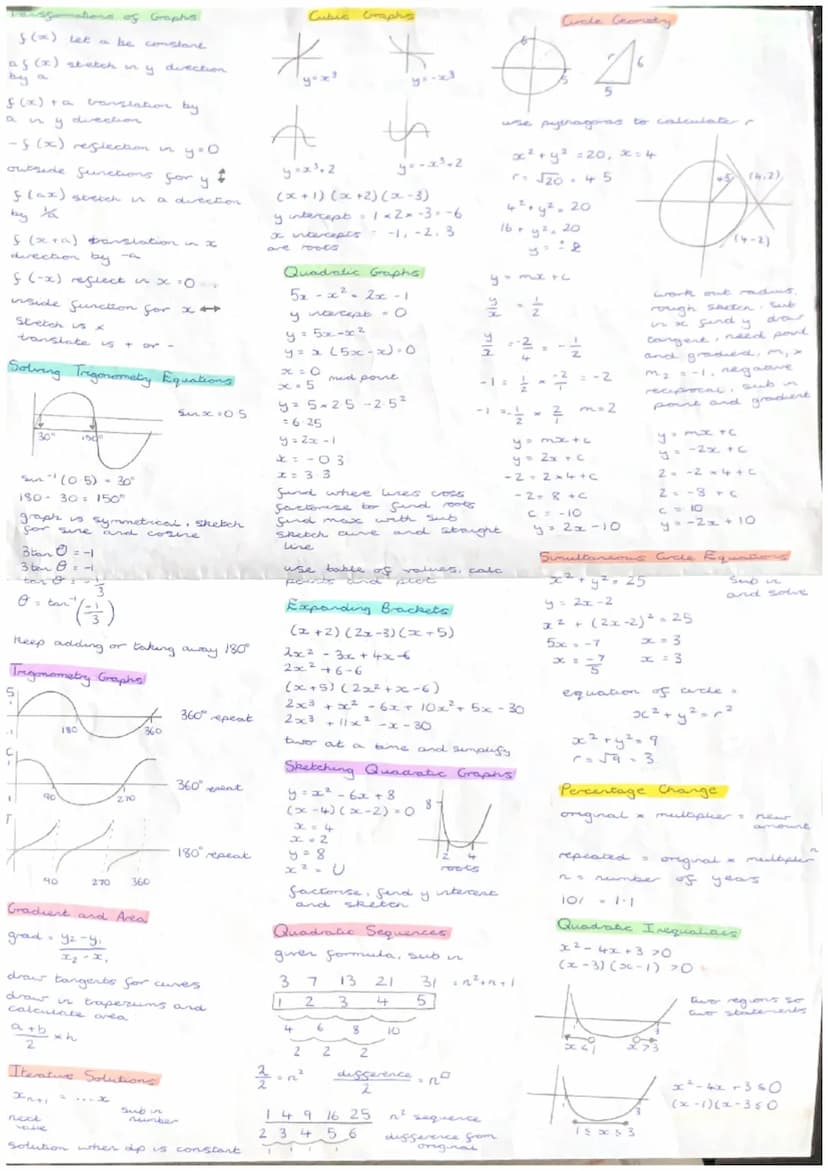 Transformations of Graphs
f(x) let a be constant
af(x) stretch in y direction
by a
f(x) + a translation by
a in y direction
-f(x) reflection in y=0
outside functions for y ↕
f(ax) stretch in x direction
by 1/a
f(x+a) translation in x
direction by -a
f(-x) reflect in x=0
inside function for x ↔
stretch is ×
translate is + or -
Solving Trigonometry Equations
sin x = 0.5
30° 150°
sin⁻¹(0.5) = 30°
180 - 30 = 150°
graph is symmetrical, sketch
for sine and cosine
3tan θ = -1
3tan θ = -1
tan θ = -1/3
θ = tan⁻¹(-1/3)
keep adding or taking away 180°
Trigonometry Graphs
S
180 360
360° repeat
C
90 270
360° repeat
T
90 270 360
180° repeat
Gradient and Area
grad = y₂ - y₁
x₂ - x₁
draw tangents for curves
draw in trapeziums and
calculate area
a + b
2 × h
Iterative Solutions
xₙ₊₁ = ... x
next
value
sub in
number
solution when dp is constant
Cubic Graphs
y = x³ y = -x³
y = x³+2 y = -x³+2
(x+1)(x+2)(x-3)
y intercept = 1×2×-3 = -6
x intercepts = -1, -2, 3
are roots
Quadratic Graphs
5x - x² = 2x - 1
y intercept = 0
y = 5x - x²
y = x(5x - x) = 0
x = 0
x = 5 mid point
y = 5×2.5 - 2.5²
= 6.25
y = 2x - 1
x = -0.3
x = 3.3
find where lines cross
factorise to find roots
find max with sub
sketch curve and straight
line
use table of values, calc
points and plot
Expanding Brackets
(x+2)(2x-3)(x+5)
2x² - 3x + 4x - 6
2x² + 6 - 6
(x+5)(2x² + x - 6)
2x³ + x² - 6x + 10x² + 5x - 30
2x³ + 11x² - x - 30
two at a time and simplify
Sketching Quadratic Graphs
y = x² - 6x + 8
(x-4)(x-2) = 0
x = 4
x = 2
y = 8
x² = U
8
2 4
roots
factorise, find y intercept
and sketch
Quadratic Sequences
given formula, sub in
3 7 13 21 31 = n²+n+1
1 2 3 4 5
4 6 8 10
2 2 2
2/2 = n² difference/2 = n□
1 4 9 16 25 n² sequence
2 3 4 5 6 difference from
original
1 1 1 1
Circle Geometry
6
5
r 6
5
use pythagoras to calculate r
x² + y² = 20, x = 4
r = √20 = 4.5
4² + y² = 20
16 + y² = 20
y = ± 2
4.5 (4,2)
(4-2)
y = mx + c
y/x = 1/2
y/x = -2/4 = -1/2
-1 = 1/2 × -2/1 = -2
-1 = -1/2 × 2/1 m=2
y = mx + c
y = 2x + c
-2 = 2×4 + c
-2 = 8 + c
c = -10
y = 2x - 10
work out radius,
rough sketch, sub
in x find y, draw
tangent, need point
and gradient, m₁ ×
m₂ = -1, negative
reciprocal, sub in
point and gradient
y = mx + c
y = -2x + c
2 = -2×4 + c
2 = -8 + c
c = 10
y = -2x + 10
Simultaneous Circle Equations
x² + y² = 25
sub in
and solve
y = 2x - 2
x² + (2x-2)² = 25
5x = -7 x = 3
x = -7/5 x = 3
equation of circle =
x² + y² = r²
x² + y² = 9
r = √9 = 3
Percentage Change
original × multiplier = new
amount
repeated = original × multiplierⁿ
n = number of years
10% = 1.1
Quadratic Inequalities
x² - 4x + 3 > 0
(x-3)(x-1) > 0
two regions so
two statements
1 3
x < 1 x > 3
x² - 4x + 3 ≤ 0
(x-1)(x-3 ≤ 0
1 3
1 ≤ x ≤ 3